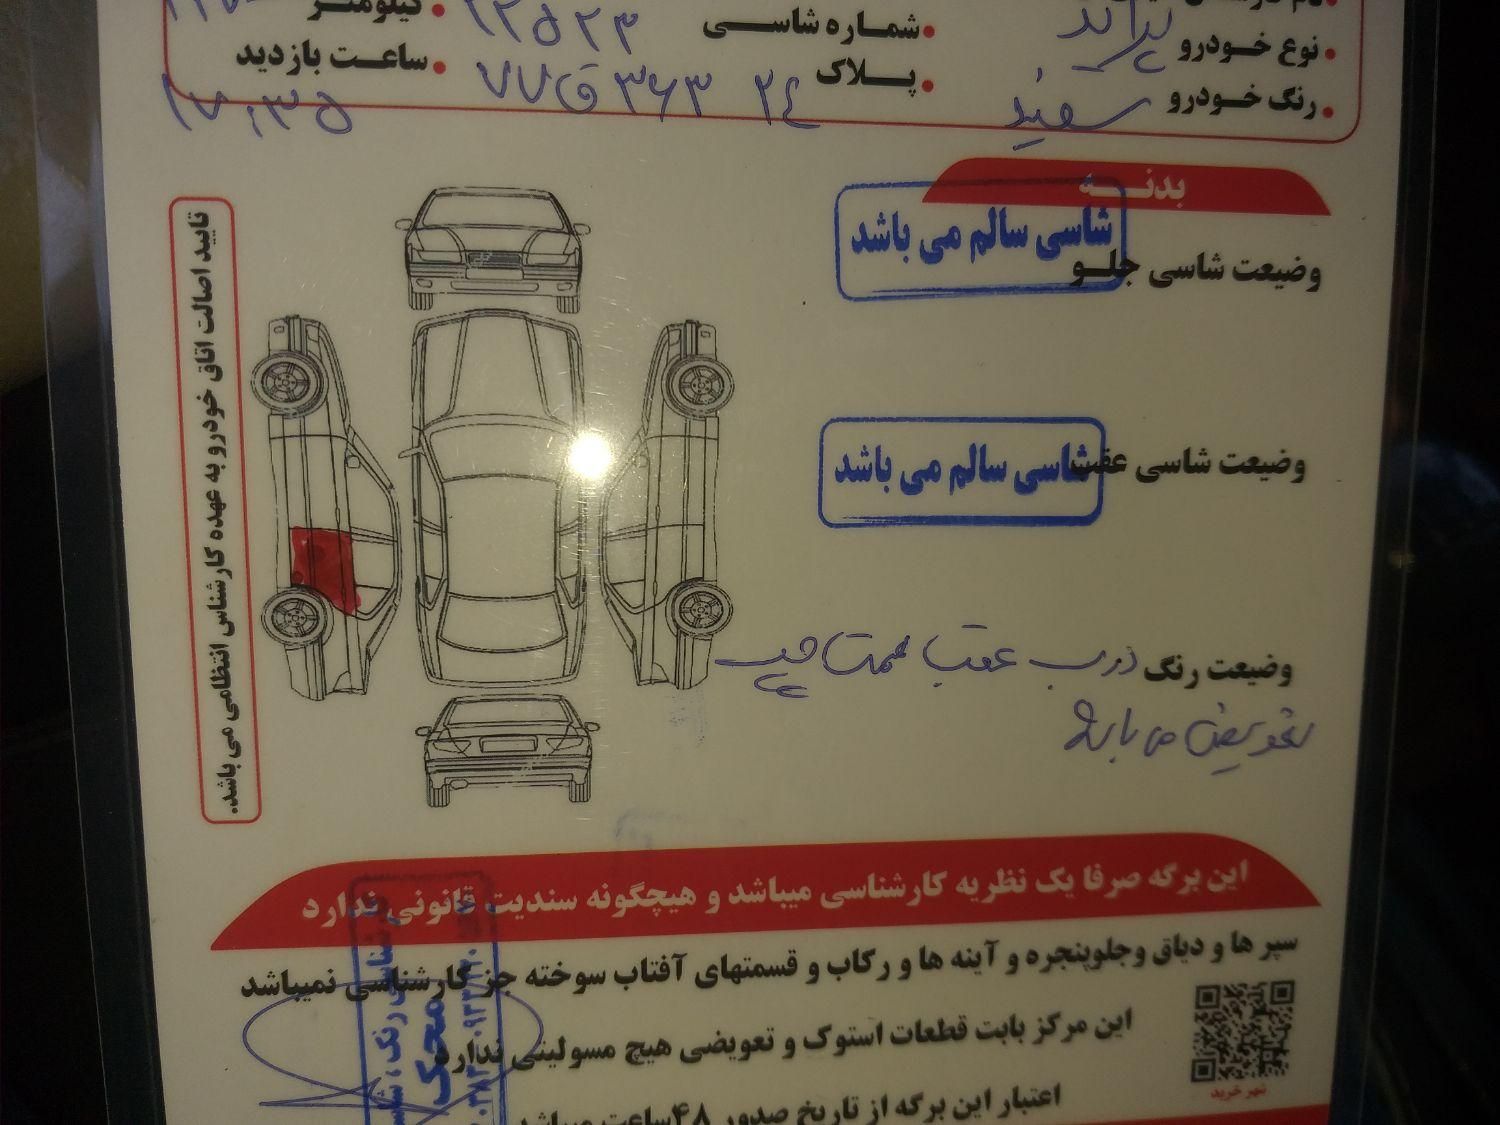 کیلومتر
شماره شاسی ۲۲۵۲۳
نوع خودرو پراید
ساعت بازدید ۱۷:۳۵
پلاک ۷۷ ق ۳۶۳ ۲۴
رنگ خودرو سفید
بدنه
وضعیت شاسی جلو شاسی سالم می باشد
وضعیت شاسی عقب شاسی سالم می باشد
وضعیت رنگ درب عقب سمت چپ
تعویض می باشد
تایید اصالت اتاق خودرو به عهده کارشناس انتظامی می باشد.
این برگه صرفا یک نظریه کارشناسی میباشد و هیچگونه سندیت قانونی ندارد
سپر ها و دیاق وجلوپنجره و آینه ها و رکاب و قسمتهای آفتاب سوخته جز کارشناسی نمیباشد
این مرکز بابت قطعات استوک و تعویضی هیچ مسولیتی ندارد
اعتبار این برگه از تاریخ صدور ۴۸ساعت میباشد
مهر خرید
محک